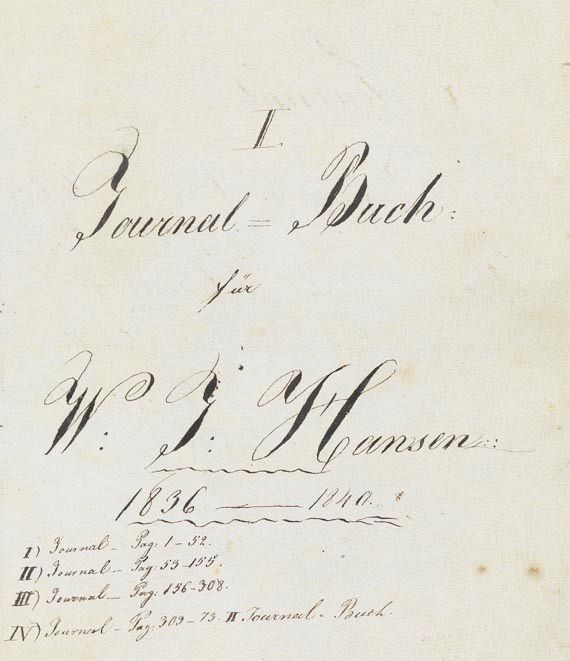 I.
Journal = Buch:
für
W: J: Hansen:
1836 — 1840.
I) Journal – Pag: 1–52.
II) Journal – Pag: 53–155.
III) Journal – Pag: 156–308.
IV) Journal – Pag: 309–73. II Journal – Buch.